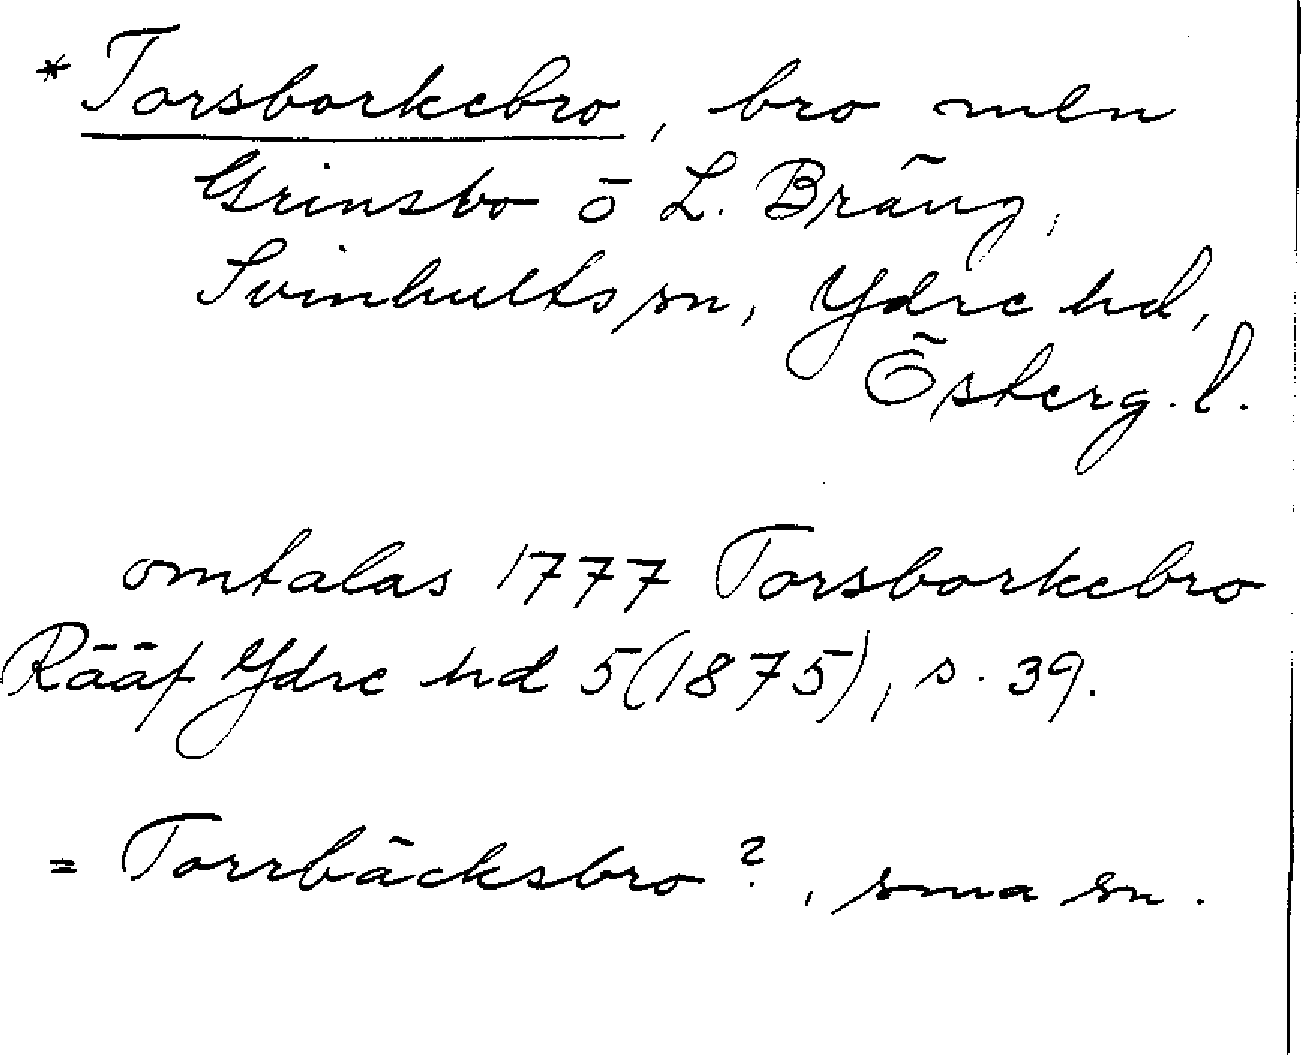 * Torsborkebro, bro mln
Grinsbo ö L. Bräng,
Svinhults sn, Ydre hd,
Österg. l.
omtalas 1777 Torsborkebro
Rääf Ydre hd 5 (1875), s. 39.
= Torrbäcksbro?, sma sn.